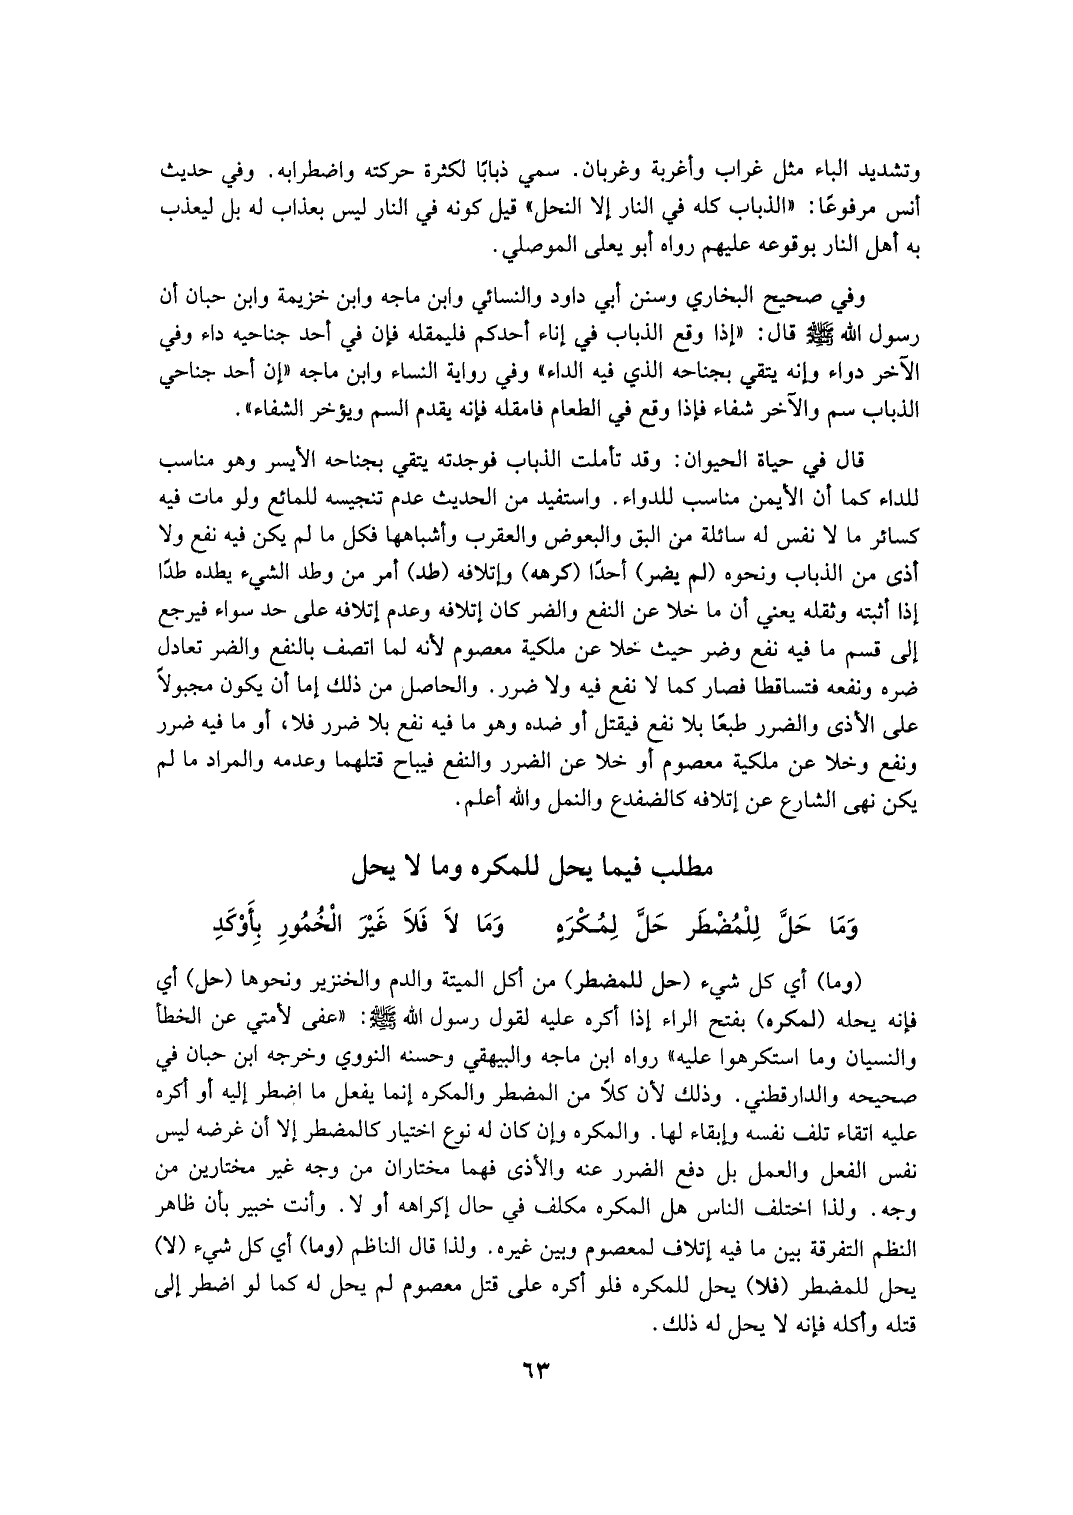 وتشديد الباء مثل غراب وأغربة وغربان. سمي ذبابًا لكثرة حركته واضطرابه. وفي حديث
أنس مرفوعًا: «الذباب كله في النار إلا النحل» قيل كونه في النار ليس بعذاب له بل ليعذب
به أهل النار بوقوعه عليهم رواه أبو يعلى الموصلي.
وفي صحيح البخاري وسنن أبي داود والنسائي وابن ماجه وابن خزيمة وابن حبان أن
رسول الله ﷺ قال: «إذا وقع الذباب في إناء أحدكم فليمقله فإن في أحد جناحيه داء وفي
الآخر دواء وإنه يتقي بجناحه الذي فيه الداء» وفي رواية النساء وابن ماجه «إن أحد جناحي
الذباب سم والآخر شفاء فإذا وقع في الطعام فامقله فإنه يقدم السم ويؤخر الشفاء».
قال في حياة الحيوان: وقد تأملت الذباب فوجدته يتقي بجناحه الأيسر وهو مناسب
للداء كما أن الأيمن مناسب للدواء. واستفيد من الحديث عدم تنجيسه للمائع ولو مات فيه
كسائر ما لا نفس له سائلة من البق والبعوض والعقرب وأشباهها فكل ما لم يكن فيه نفع ولا
أذى من الذباب ونحوه (لم يضر) أحدًا (كرهه) وإتلافه (طد) أمر من وطد الشيء يطده طدًا
إذا أثبته وثقله يعني أن ما خلا عن النفع والضر كان إتلافه وعدم إتلافه على حد سواء فيرجع
إلى قسم ما فيه نفع وضر حيث خلا عن ملكية معصوم لأنه لما اتصف بالنفع والضر تعادل
ضره ونفعه فتساقطا فصار كما لا نفع فيه ولا ضرر. والحاصل من ذلك إما أن يكون مجبولاً
على الأذى والضرر طبعًا بلا نفع فيقتل أو ضده وهو ما فيه نفع بلا ضرر فلا، أو ما فيه ضرر
ونفع وخلا عن ملكية معصوم أو خلا عن الضرر والنفع فيباح قتلهما وعدمه والمراد ما لم
يكن نهى الشارع عن إتلافه كالضفدع والنمل والله أعلم.
مطلب فيما يحل للمكره وما لا يحل
وَمَا حَلَّ لِلْمُضْطَر حَلَّ لِمُـكْرَهٍ وَمَا لاَ فَلاَ غَيْرَ الْخُمُورِ بِأَوْكَدِ
(وما) أي كل شيء (حل للمضطر) من أكل الميتة والدم والخنزير ونحوها (حل) أي
فإنه يحله (لمكره) بفتح الراء إذا أكره عليه لقول رسول الله ﷺ: «عفى لأمتي عن الخطأ
والنسيان وما استكرهوا عليه» رواه ابن ماجه والبيهقي وحسنه النووي وخرجه ابن حبان في
صحيحه والدارقطني. وذلك لأن كلاً من المضطر والمكره إنما يفعل ما اضطر إليه أو أكره
عليه اتقاء تلف نفسه وإبقاء لها. والمكره وإن كان له نوع اختيار كالمضطر إلا أن غرضه ليس
نفس الفعل والعمل بل دفع الضرر عنه والأذى فهما مختاران من وجه غير مختارين من
وجه. ولذا اختلف الناس هل المكره مكلف في حال إكراهه أو لا. وأنت خبير بأن ظاهر
النظم التفرقة بين ما فيه إتلاف لمعصوم وبين غيره. ولذا قال الناظم (وما) أي كل شيء (لا)
يحل للمضطر (فلا) يحل للمكره فلو أكره على قتل معصوم لم يحل له كما لو اضطر إلى
قتله وأكله فإنه لا يحل له ذلك.
٦٣